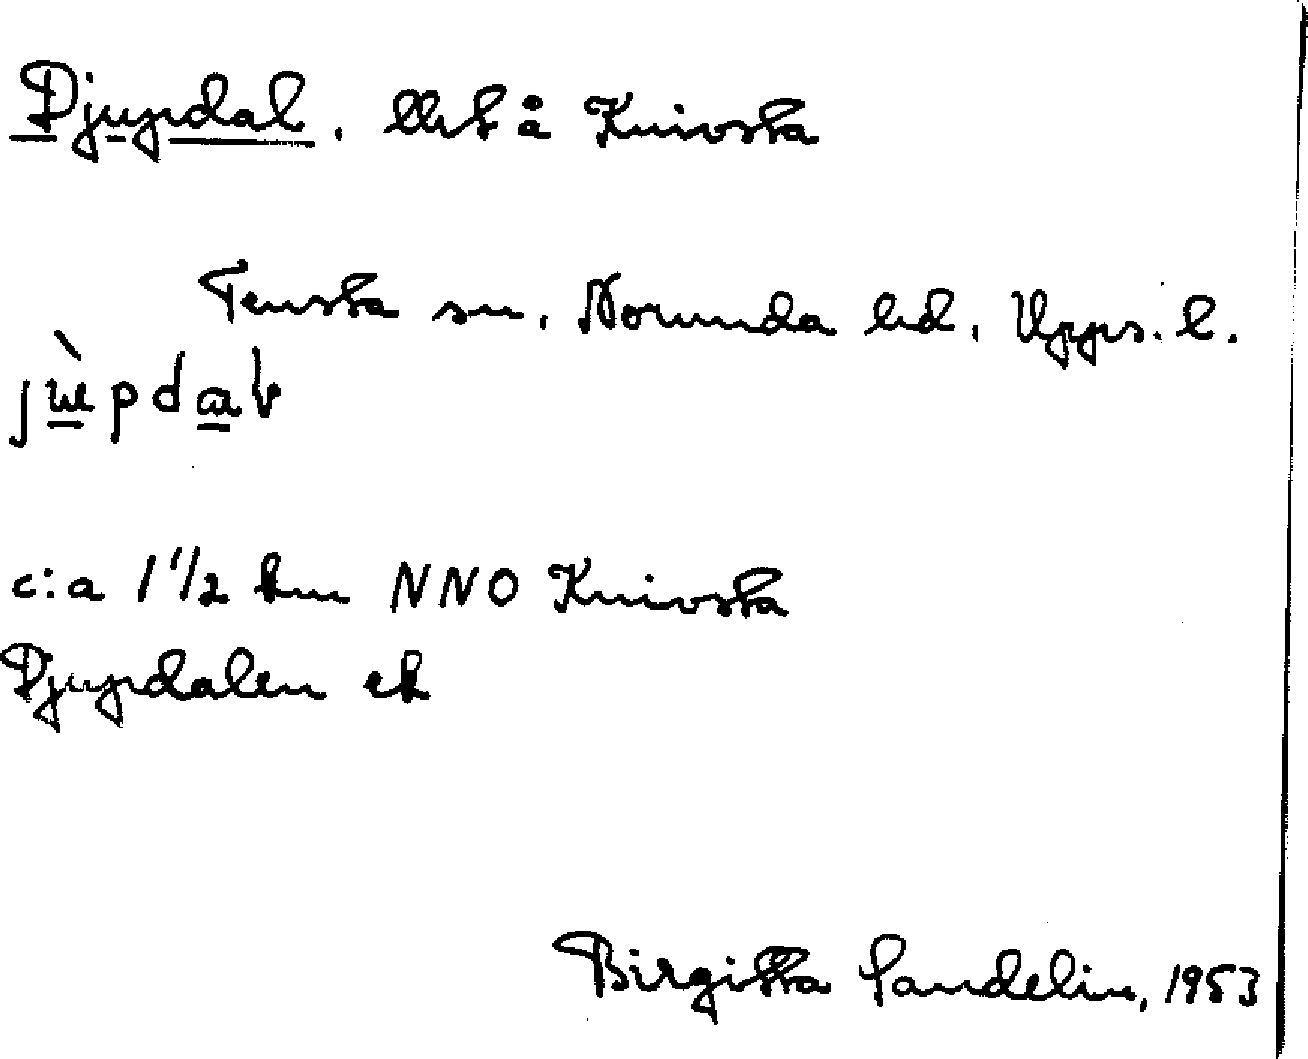 Djupdal, llhf å Knivsta
Tensta sn, Norunda hd, Upps. l.
c:a 1 1/2 km NNO Knivsta
Djupdalen ek
Birgitta Sandelin, 1953